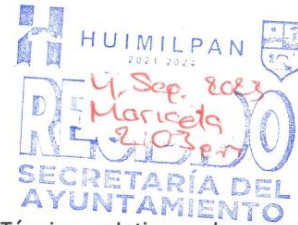 HUIMILPAN
2021 2024
4. Sep. 2023
Maricela
2:03 pm
RECIBIDO
SECRETARÍA DEL
AYUNTAMIENTO